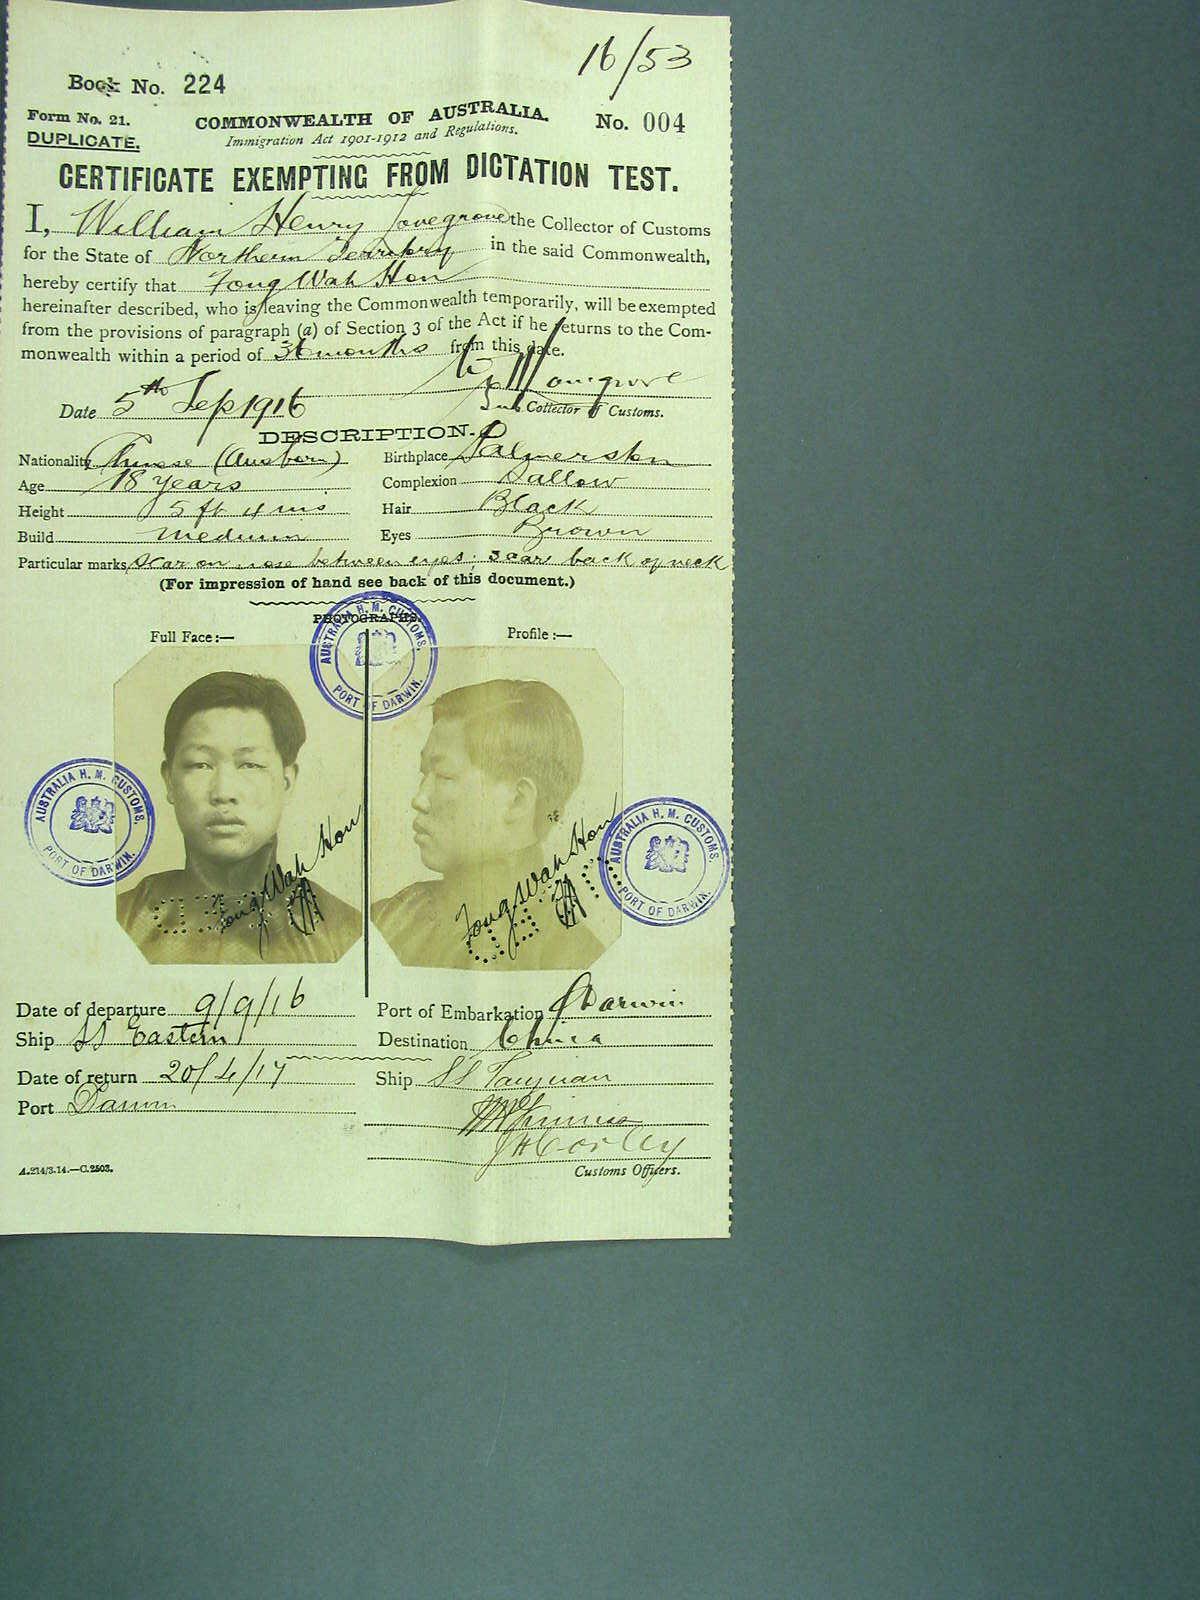 16/53
Book No. 224
Form No. 21.
DUPLICATE.
COMMONWEALTH OF AUSTRALIA.
No. 004
Immigration Act 1901-1912 and Regulations.
CERTIFICATE EXEMPTING FROM DICTATION TEST.
I, William Henry Lovegrove the Collector of Customs
for the State of Northern Territory in the said Commonwealth,
hereby certify that Fong Wah Hon
hereinafter described, who is leaving the Commonwealth temporarily, will be exempted
from the provisions of paragraph (a) of Section 3 of the Act if he returns to the Com-
monwealth within a period of 36 months from this date.
Date 5th Sep 1916
Sub Collector of Customs.
DESCRIPTION.
Nationality Chinese (Ausborn) Birthplace Palmerston
Age 18 years Complexion Sallow
Height 5 ft 4 ins Hair Black
Build medium Eyes Brown
Particular marks Scar on nose between eyes; scar back of neck
(For impression of hand see back of this document.)
PHOTOGRAPHS.
Full Face:—
Profile:—
AUSTRALIA H. M. CUSTOMS. PORT OF DARWIN.
AUSTRALIA H. M. CUSTOMS. PORT OF DARWIN.
AUSTRALIA H. M. CUSTOMS. PORT OF DARWIN.
Fong Wah Hon
Fong Wah Hon
Date of departure 9/9/16 Port of Embarkation Darwin
Ship SS Eastern Destination China
Date of return 20/4/17 Ship SS Taiyuan
Port Darwin
Customs Officers.
A.214/3.14.—C.2503.